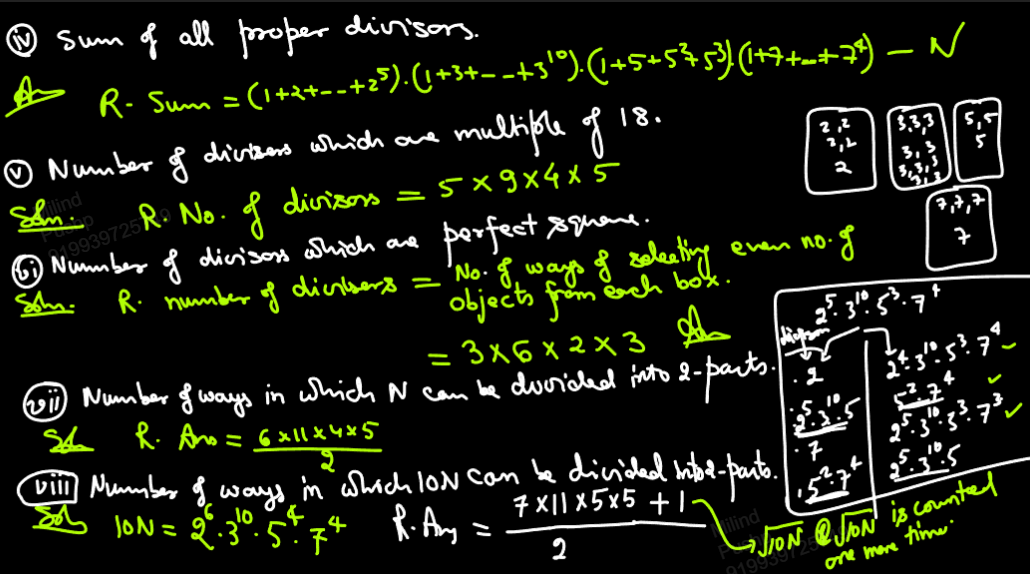 (iv) Sum of all proper divisors.
Ans R. Sum = (1+2+--+2^5).(1+3+--+3^10).(1+5+5^2+5^3).(1+7+--+7^4) – N
(v) Number of divisors which are multiple of 18.
Soln. R. No. of divisors = 5×9×4×5
(vi) Number of divisors which are perfect square.
Soln. R. number of divisors = No. of ways of selecting even no. of
objects from each box.
= 3×6×2×3 Ans
(vii) Number of ways in which N can be divided into 2-parts.
Sol R. Ans = 6×11×4×5 / 2
(viii) Number of ways in which 10N can be divided into 2-parts.
Sol 10N = 2^6.3^10.5^4.7^4 R. Ans = 7×11×5×5 + 1 / 2
→ √10N @ √10N is counted
one more time.
2,2
2,2
2
3,3,3
3,3
3,3,3
3,3
5,5
5
7,7,7
7
2^5.3^10.5^3.7^4
divisors
.2 2^4.3^10.5^3.7^4
.2^5.3^10.5 5^2.7^4
.7 2^5.3^10.5^3.7^3
.5^2.7^4 2^5.3^10.5
Milind
Milind